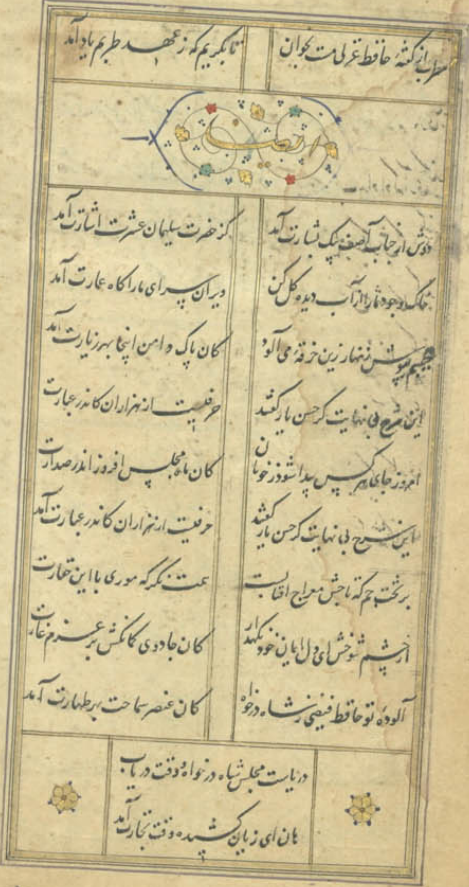 مطرب از گفتهٔ حافظ غزلی مست بخوان تا بگریم که ز عهد طربم یاد آمد
و ایضا
دوش از جناب آصف پیک بشارت آمد کز حضرت سلیمان عشرت اشارت آمد
خاک وجود ما را از آب دیده گل کن ویران سرای ما را گاه عمارت آمد
عیبم بپوش زنهار زین خرقهٔ می آلود کان پاک دامن اینجا بهر زیارت آمد
این شرح بی نهایت کز حسن یار گفتند حرفیست از هزاران کاندر عبارت
امروز جای هر کس پیدا شود ز خوبان کان ماه مجلس افروز اندر صدارت
این شرح بی نهایت کز حسن یار گفتند حرفیست از هزاران کاندر عبارت آمد
بر تخت جم که تاجش معراج آفتابست همت نگر که موری با این حقارت
از چشم شوخش ای دل ایمان خود نگهدار کان جادوی کمانکش بر عزم غارت
آلودهٔ تو حافظ فیضی ز شاه درخواه کان عنصر سماحت بهر طهارت آمد
دریاست مجلس شاه دریاب وقت دریاب
هان ای زیان کشیده وقت تجارت آمد